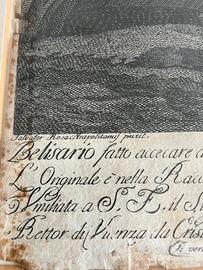 Salvator Rosa Neapolitanus pinxit.
Belisario fatto accecare d
L'Originale è nella Racc
Umiliata a S. E. il
Rettor di Vicenza da Crist
Si ven